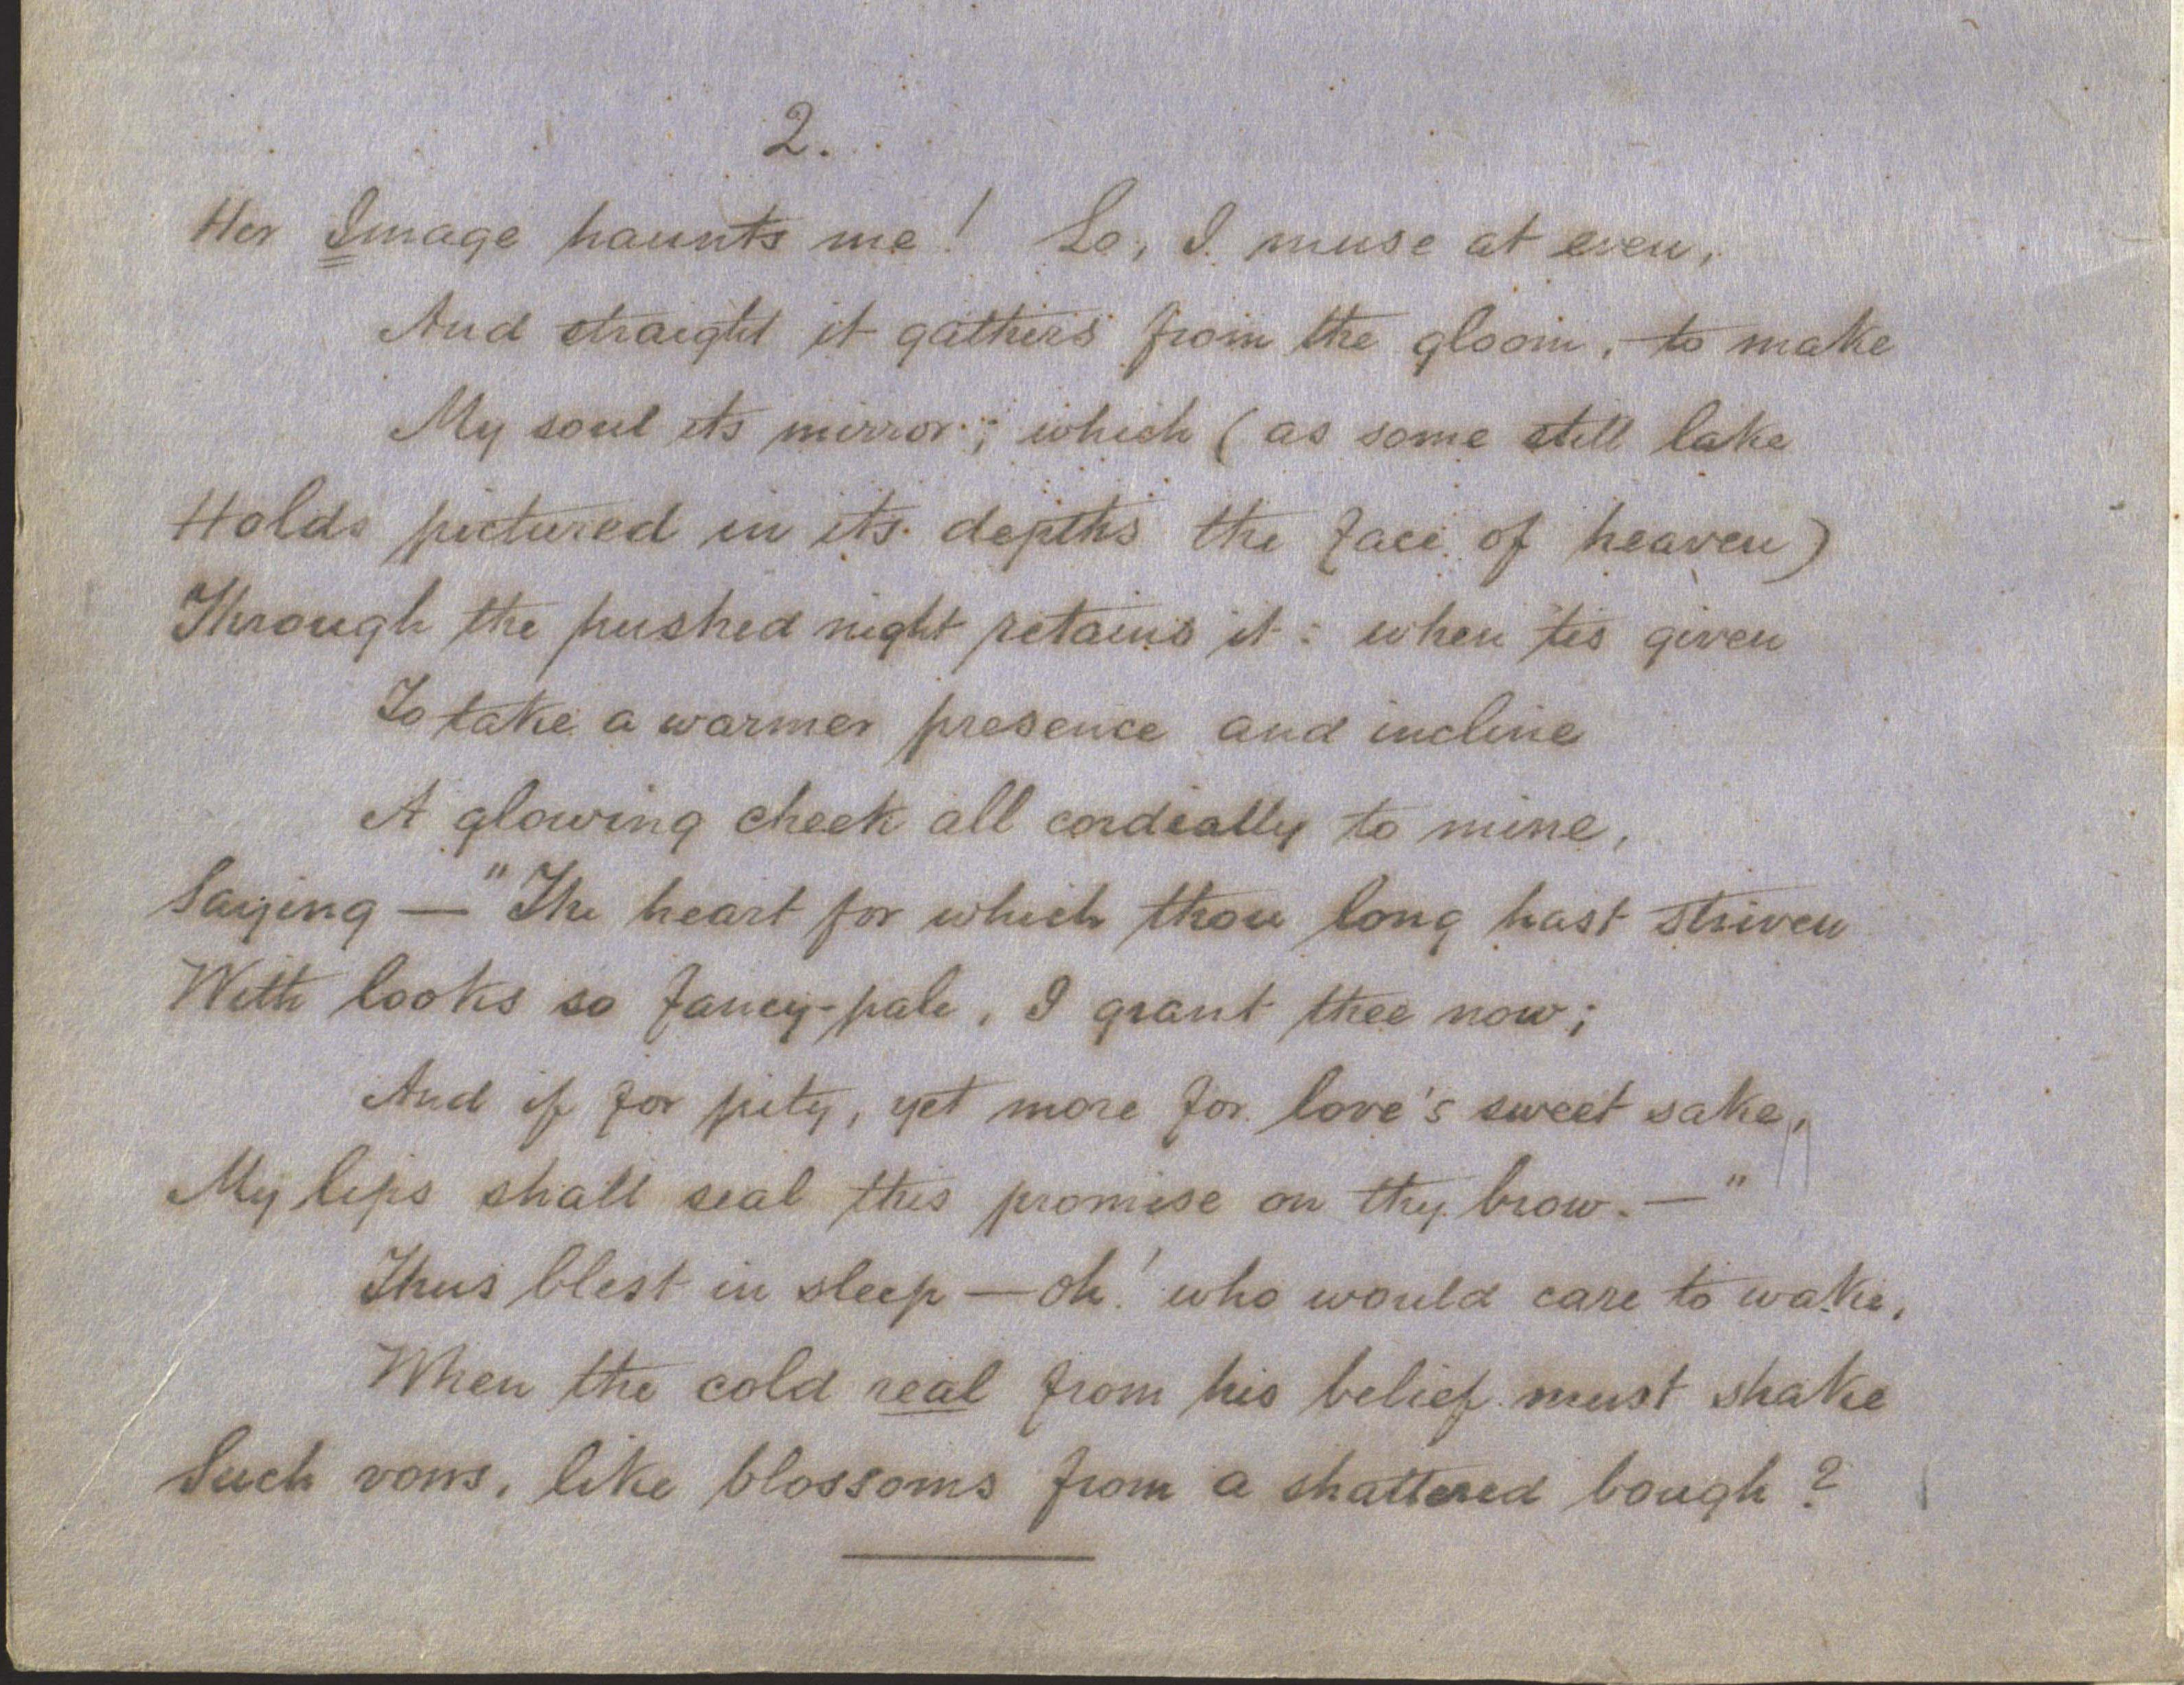 2.
Her Image haunts me! Lo, I muse at even,
And straight it gathers from the gloom, to make
My soul its mirror; which (as some still lake
Holds pictured in its depths the face of heaven)
Through the hushed night retains it: when 'tis given
To take a warmer presence and incline
A glowing cheek all cordially to mine,
Saying — "The heart for which thou long hast striven
With looks so fancy-pale, I grant thee now;
And if for pity, yet more for love's sweet sake,
My lips shall seal this promise on thy brow. — "
Thus blest in sleep — oh! who would care to wake,
When the cold real from his belief must shake
Such vows, like blossoms from a shattered bough?